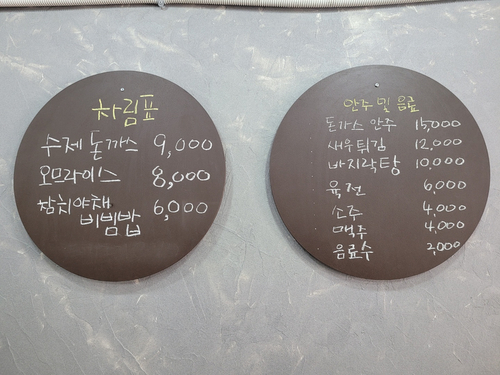 차림표
수제 돈까스 9,000
오므라이스 8,000
참치야채
비빔밥 6,000
안주 및 음료
돈가스 안주 15,000
새우튀김 12,000
바지락탕 10,000
육전 6,000
소주 4,000
맥주 4,000
음료수 2,000